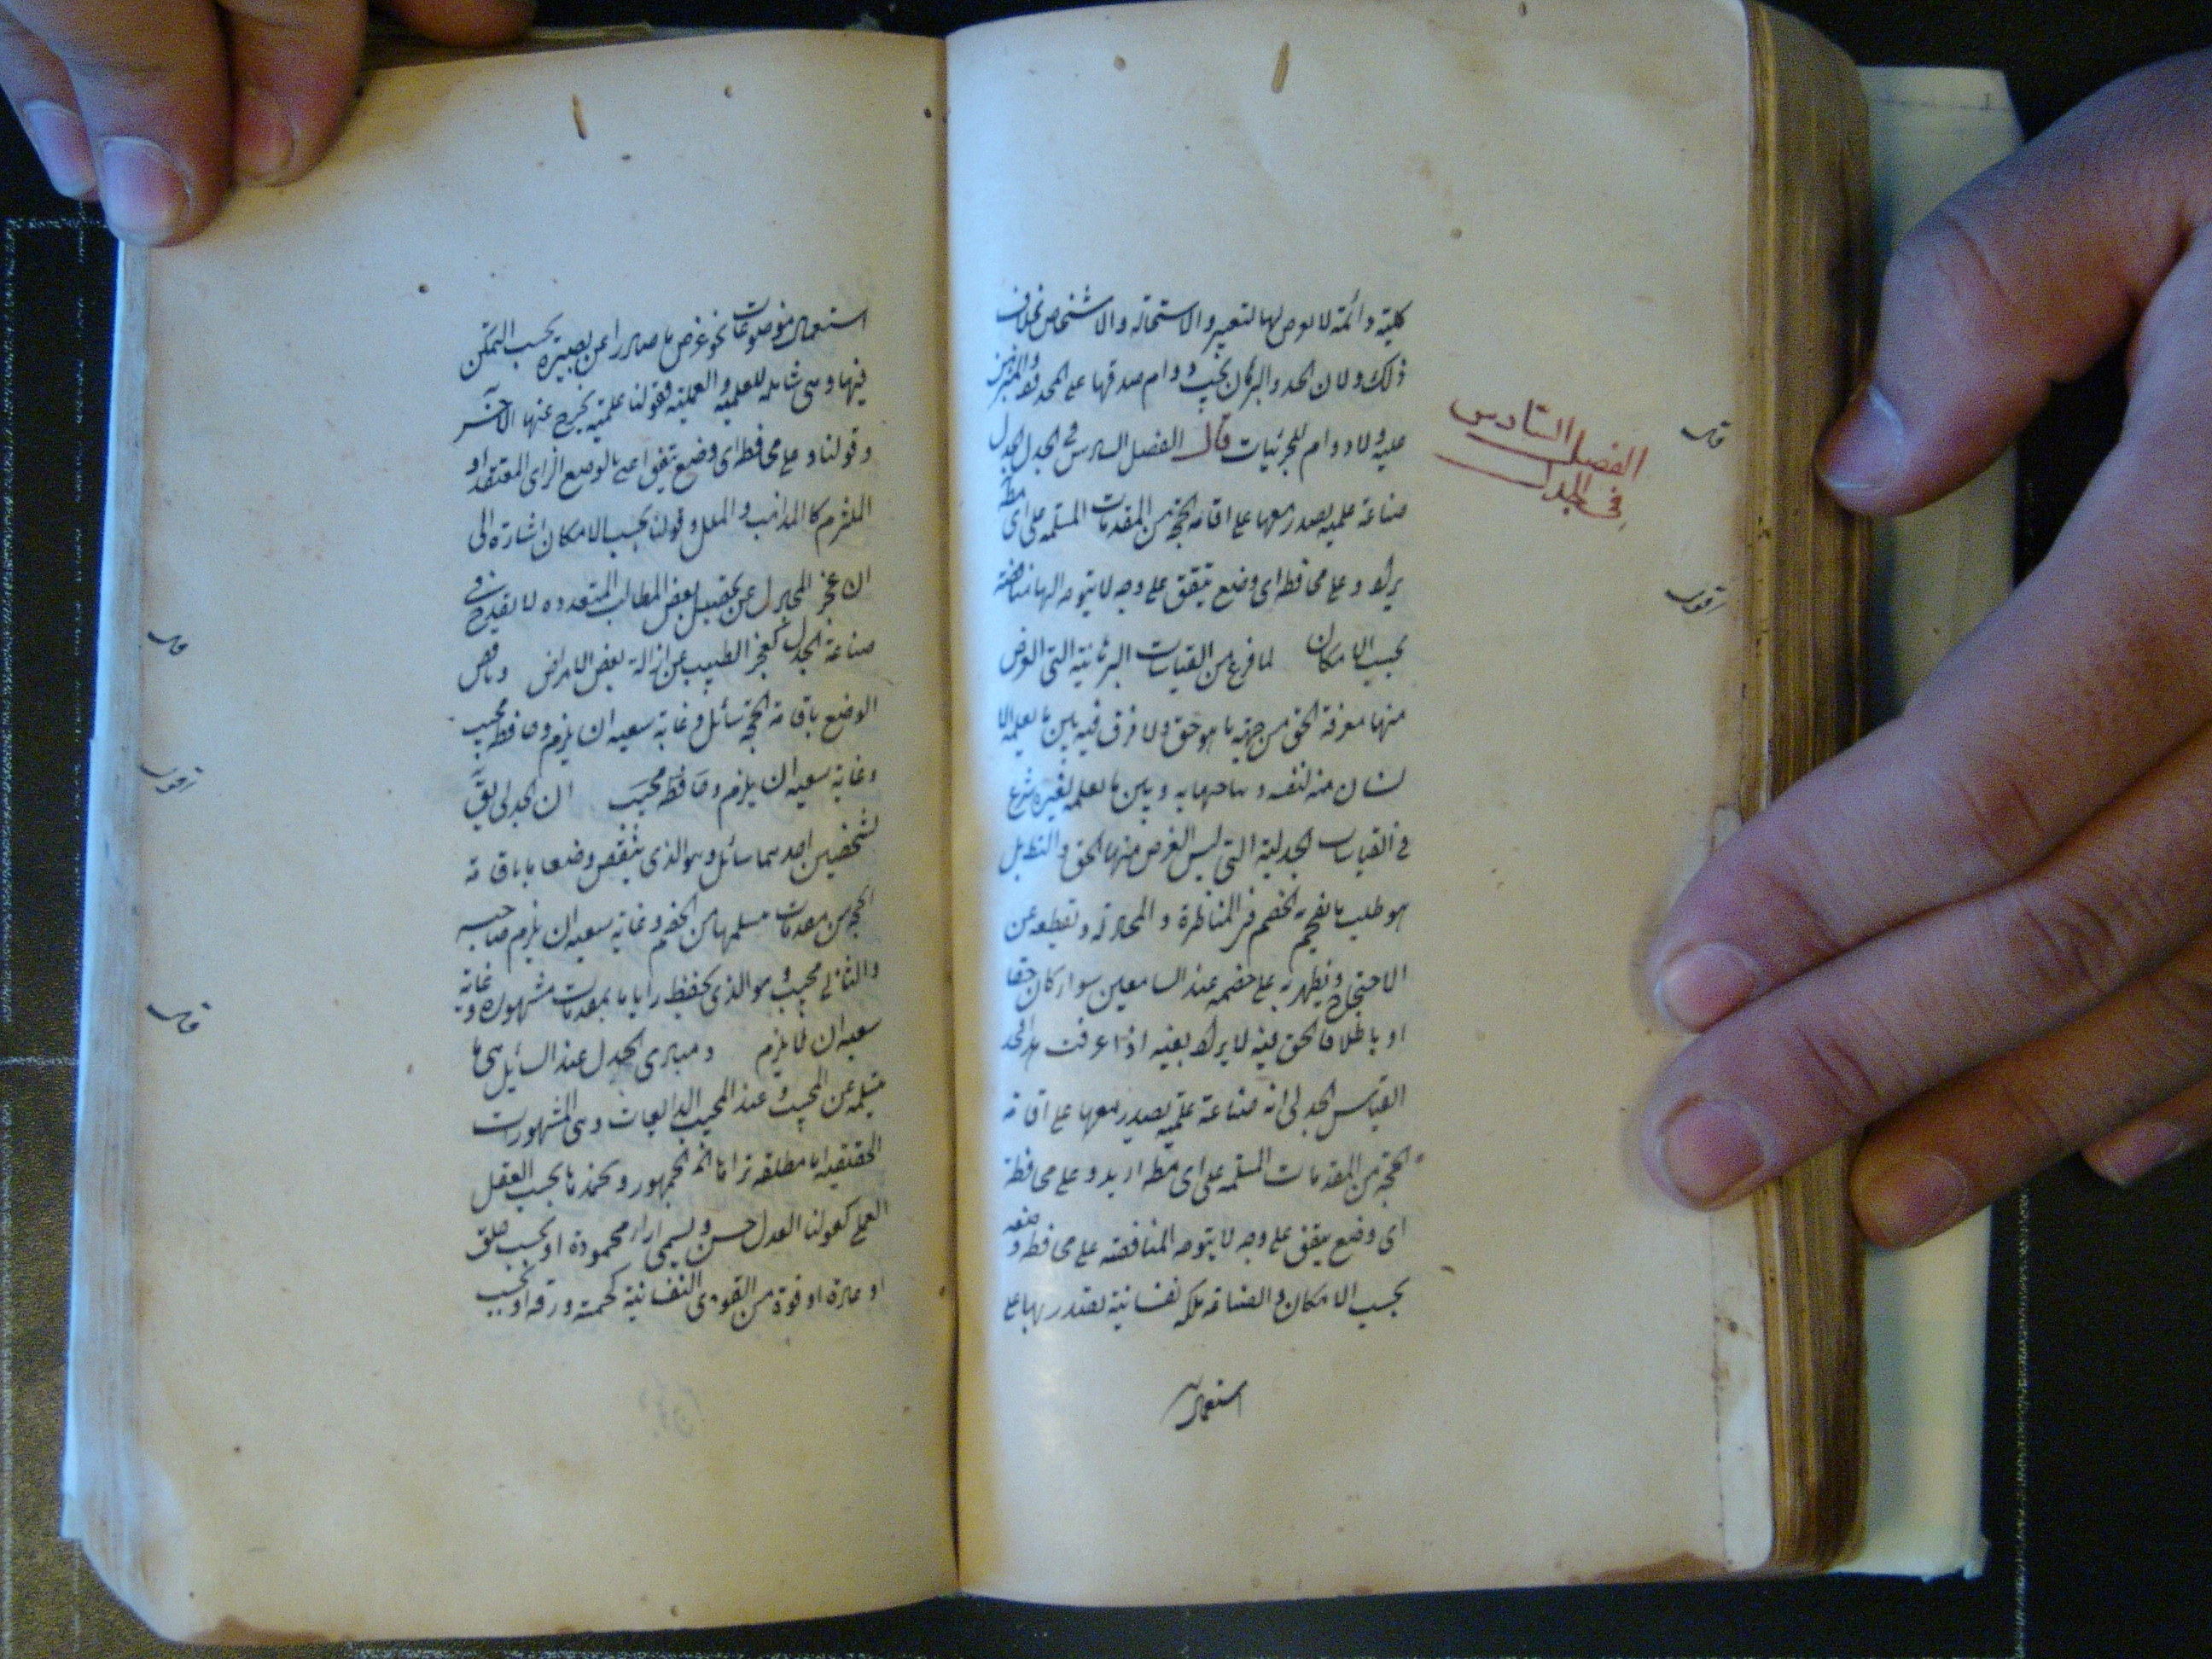 كلية دائمة لا يعرض لها التغير والاستحالة والاشخاص بخلاف
ذلك ولان الحد والبرهان يجب دوام صدقها على المحدود والمبرهن
عليه ولا دوام للجزئيات قال الفصل السادس في الجدل الجدل
صناعة علمية يقتدر معها على اقامة الحجة من المقدمات المسلمة على اى مط
يراد وعلى محافظة اى وضع يتفق على وجه لا يتوجه اليها مناقضة
بحسب الامكان لما فرغ من القياسات البرهانية التى الغرض
منها معرفة الحق من جهة ما هو حق ولا فرق فيه بين ما يعلمه الا
نسان منه لنفسه و به وبين ما يعلمه لغيره شرع
فى القياسات الجدلية التى ليس الغرض منها الحق والنظر بل
هو طلب ما يفحم به الخصم فى المناظرة والمجادلة و تقطعه عن
الاحتجاج ويظهر به على خصمه عند السامعين سواء كان حقا
او باطلا فالحق فيه لا يراد بعينه اذا عرفت هذا فحد
القياس الجدلى انه صناعة علمية يقتدر معها على اقامة
الحجة من المقدمات المسلمة على اى مط اريد وعلى محافظة
اى وضع يتفق على وجه لا يتوجه المناقضة على محافظ وضعه
بحسب الامكان والصناعة ملكة نفسانية يقتدر بها على
استعمال
الفصل السادس
فى الجدل
قال
اقول
استعمال موضوعات نحو غرض ما صادرا عن بصيرة بحسب التمكن
فيها وهى شاملة للعلمية والعملية فقولنا علمية يخرج عنها الآخر
وقولنا وعلى محافظة اى وضع يتفق اعنى بالوضع الراى المعتقد او
الملتزم كالمذاهب والملل وقولنا بحسب الامكان اشارة الى
ان عجز المجادل عن تحصيل بعض المطالب المتعددة لا يقدح فى
صناعة الجدل كعجز الطبيب عن ازالة بعض الامراض وناقض
الوضع باقامة الحجة سائل وغاية سعيه ان يلزم وحافظه مجيب
وغاية سعيه ان يلزم وحافظه مجيب ان الجدلى يق
لشخصين احدهما سائل وهو الذى ينقض وضعا ما باقامة
الحجة من مقدمات مسلمها من الخصم وغاية سعيه ان يلزم صاحبه
والثانى مجيب وهو الذى يحفظ رايا ما بمقدمات مشهورة وغاية
سعيه ان لا يلزم ومبادى الجدل عند السائل هى ما
يتسلمه عن المجيب وعند المجيب الذايعات وهى المشهورات
الحقيقية اما مطلقة يراها الجمهور وبحمدها بحسب العقل
العملى كقولنا العدل حسن ويسمى اراء محمودة او بحسب خلق
او عادة او قوة من القوى النفسانية كحمية ورقة او بحسب
قال
اقول
قال